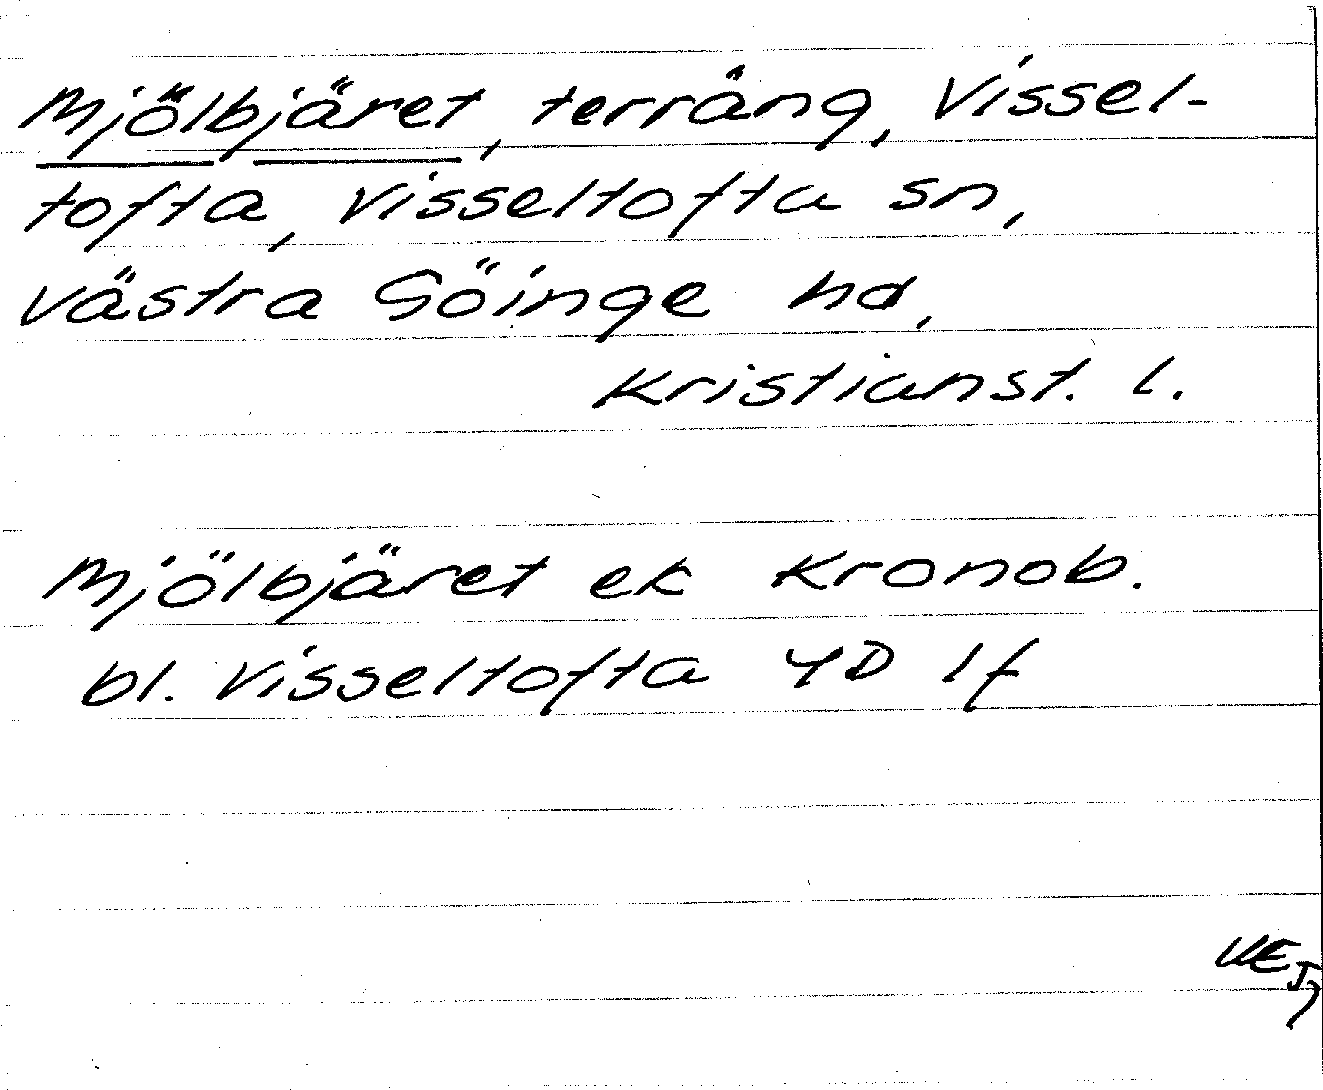 Mjölbjäret, terräng, Vissel-
tofta, Visseltofta sn,
västra Göinge hd,
Kristianst. l.
Mjölbjäret ek Kronob.
bl. Visseltofta 4D 1f